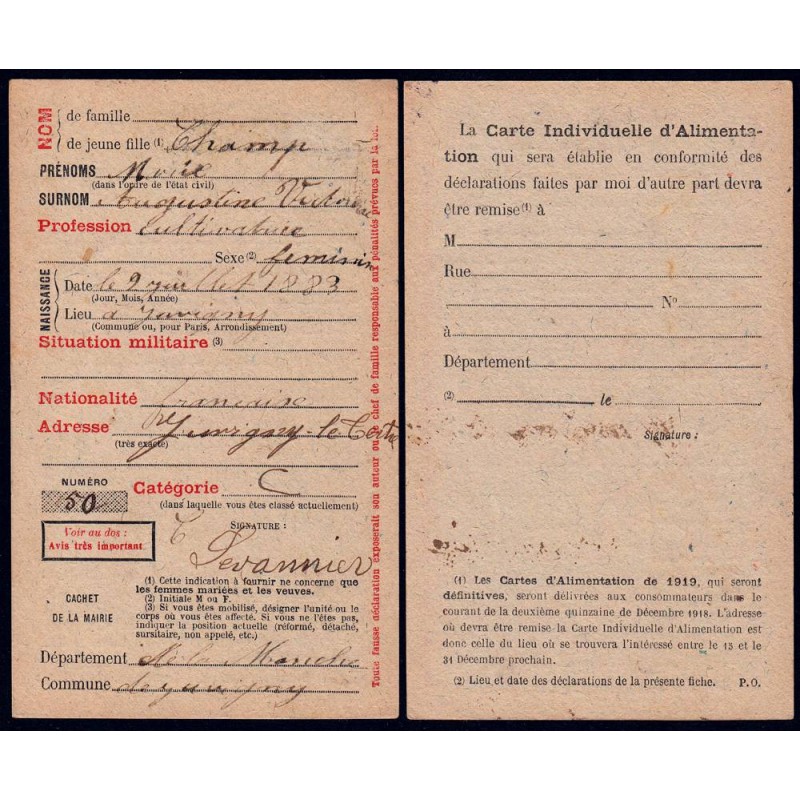 NOM
de famille
de jeune fille (1) Champ
PRÉNOMS
(dans l'ordre de l'état civil)
SURNOM Augustine
Profession Cultivatrice
Sexe (2) feminin
NAISSANCE
Date le 2 juillet 1883
(Jour, Mois, Année)
Lieu à Juvigny
(Commune ou, pour Paris, Arrondissement)
Situation militaire (3)
Nationalité française
Adresse Juvigny-le-Tertre
(très exacte)
NUMÉRO
50
Catégorie C
(dans laquelle vous êtes classé actuellement)
Voir au dos :
Avis très important
SIGNATURE :
CACHET
DE LA MAIRIE
(1) Cette indication à fournir ne concerne que
les femmes mariées et les veuves.
(2) Initiale M ou F.
(3) Si vous êtes mobilisé, désigner l'unité ou le
corps où vous êtes affecté. Si vous ne l'êtes pas,
indiquer position actuelle (réformé, détaché,
sursitaire, non appelé, etc.)
Département de la Manche
Commune de Juvigny
Toute fausse déclaration exposerait son auteur ou le chef de famille responsable aux pénalités prévues par la loi.
La Carte Individuelle d'Alimenta-
tion qui sera établie en conformité des
déclarations faites par moi d'autre part devra
être remise (1) à
M
Rue
N°
à
Département
(2) le
Signature :
(1) Les Cartes d'Alimentation de 1919, qui seront
définitives, seront délivrées aux consommateurs dans le
courant de la deuxième quinzaine de Décembre 1918. L'adresse
où devra être remise la Carte Individuelle d'Alimentation est
donc celle du lieu où se trouvera l'intéressé entre le 15 et le
31 Décembre prochain.
(2) Lieu et date des déclarations de la présente fiche. P.O.